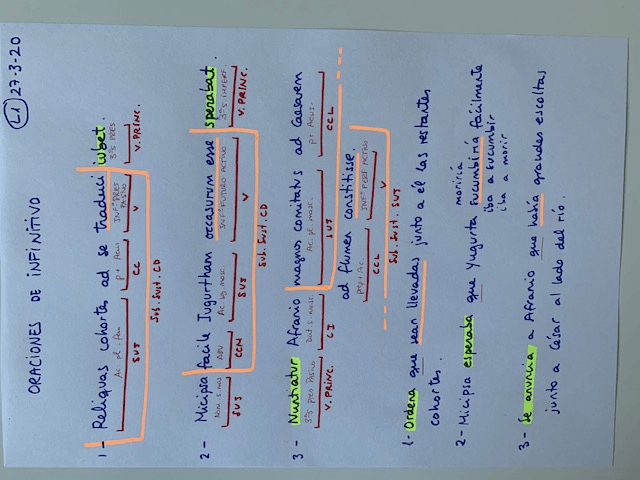 L1 27-3-20
ORACIONES DE INFINITIVO
1- Reliquas cohortes ad se traduci iubet.
Ac. pl. fem p + Acus INF. PRES PASIVO 3ªS PRES
SUJ CC V V. PRINC.
Sub. Sust. CD
2- Micipsa facile Iugurtham occasurum esse sperabat
Nom. s. mas ADV Ac sg masc. INF. FUTURO ACTIVO 3ªS IMPERF.
SUJ CCM SUJ V V. PRINC.
Sub. Sust. CD
3- Nuntiatur Afranio magnos comitatus ad Caesarem
3ªS pres Pasivo Dat. s. masc Ac. pl. masc. p + Acus.
V. PRINC. CI SUJ CCL
ad flumen constitisse.
prep + Ac. INF. PERF. ACTIVO
CCL V
Sub. Sust. SUJ
1- Ordena que sean llevadas junto a él las restantes
cohortes.
moriría
2- Micipsa esperaba que Yugurta sucumbiría fácilmente
iba a sucumbir
iba a morir
3- Se anuncia a Afranio que había grandes escoltas
junto a César al lado del río.